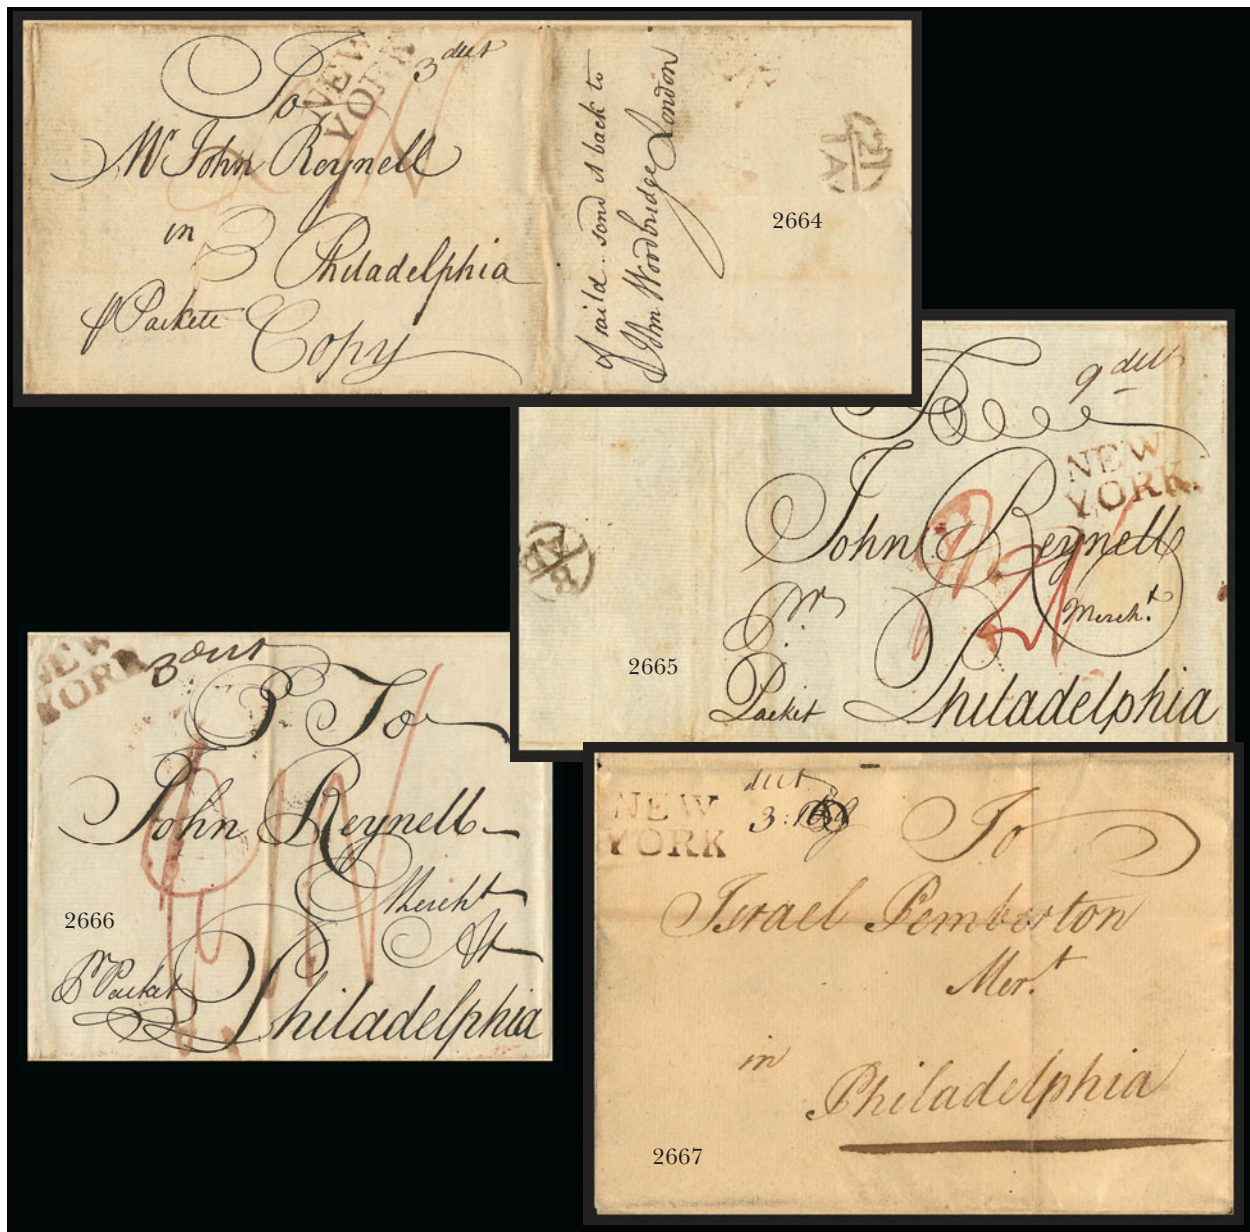 To
NEW
YORK
3 dwt
Mr John Reynell
in
Philadelphia
Packett
Copy
if faild. send it back to
John Woodbridge London
21
IA
2664
To
9 dwt
NEW
YORK
John Reynell
Mercht.
Pr
Packet
Philadelphia
2665
NEW
YORK
3 dwt
To
John Reynell
Mercht
At
Pr Packet
Philadelphia
2666
NEW
YORK
dwt
3:16
To
Israel Pemberton
Mert.
in
Philadelphia
2667